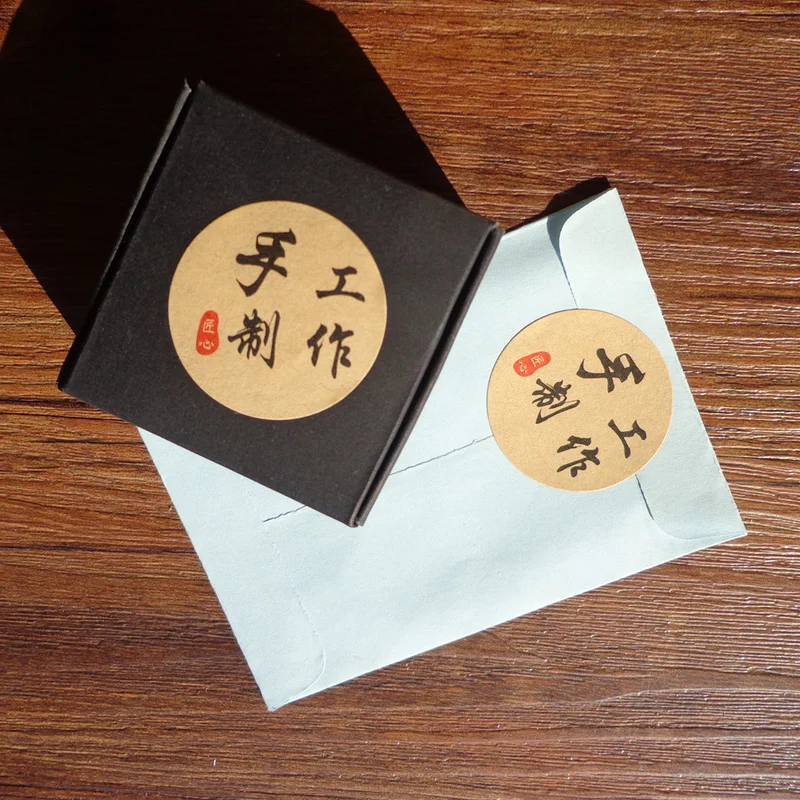 手工
制作
匠心
手工
制作
匠心